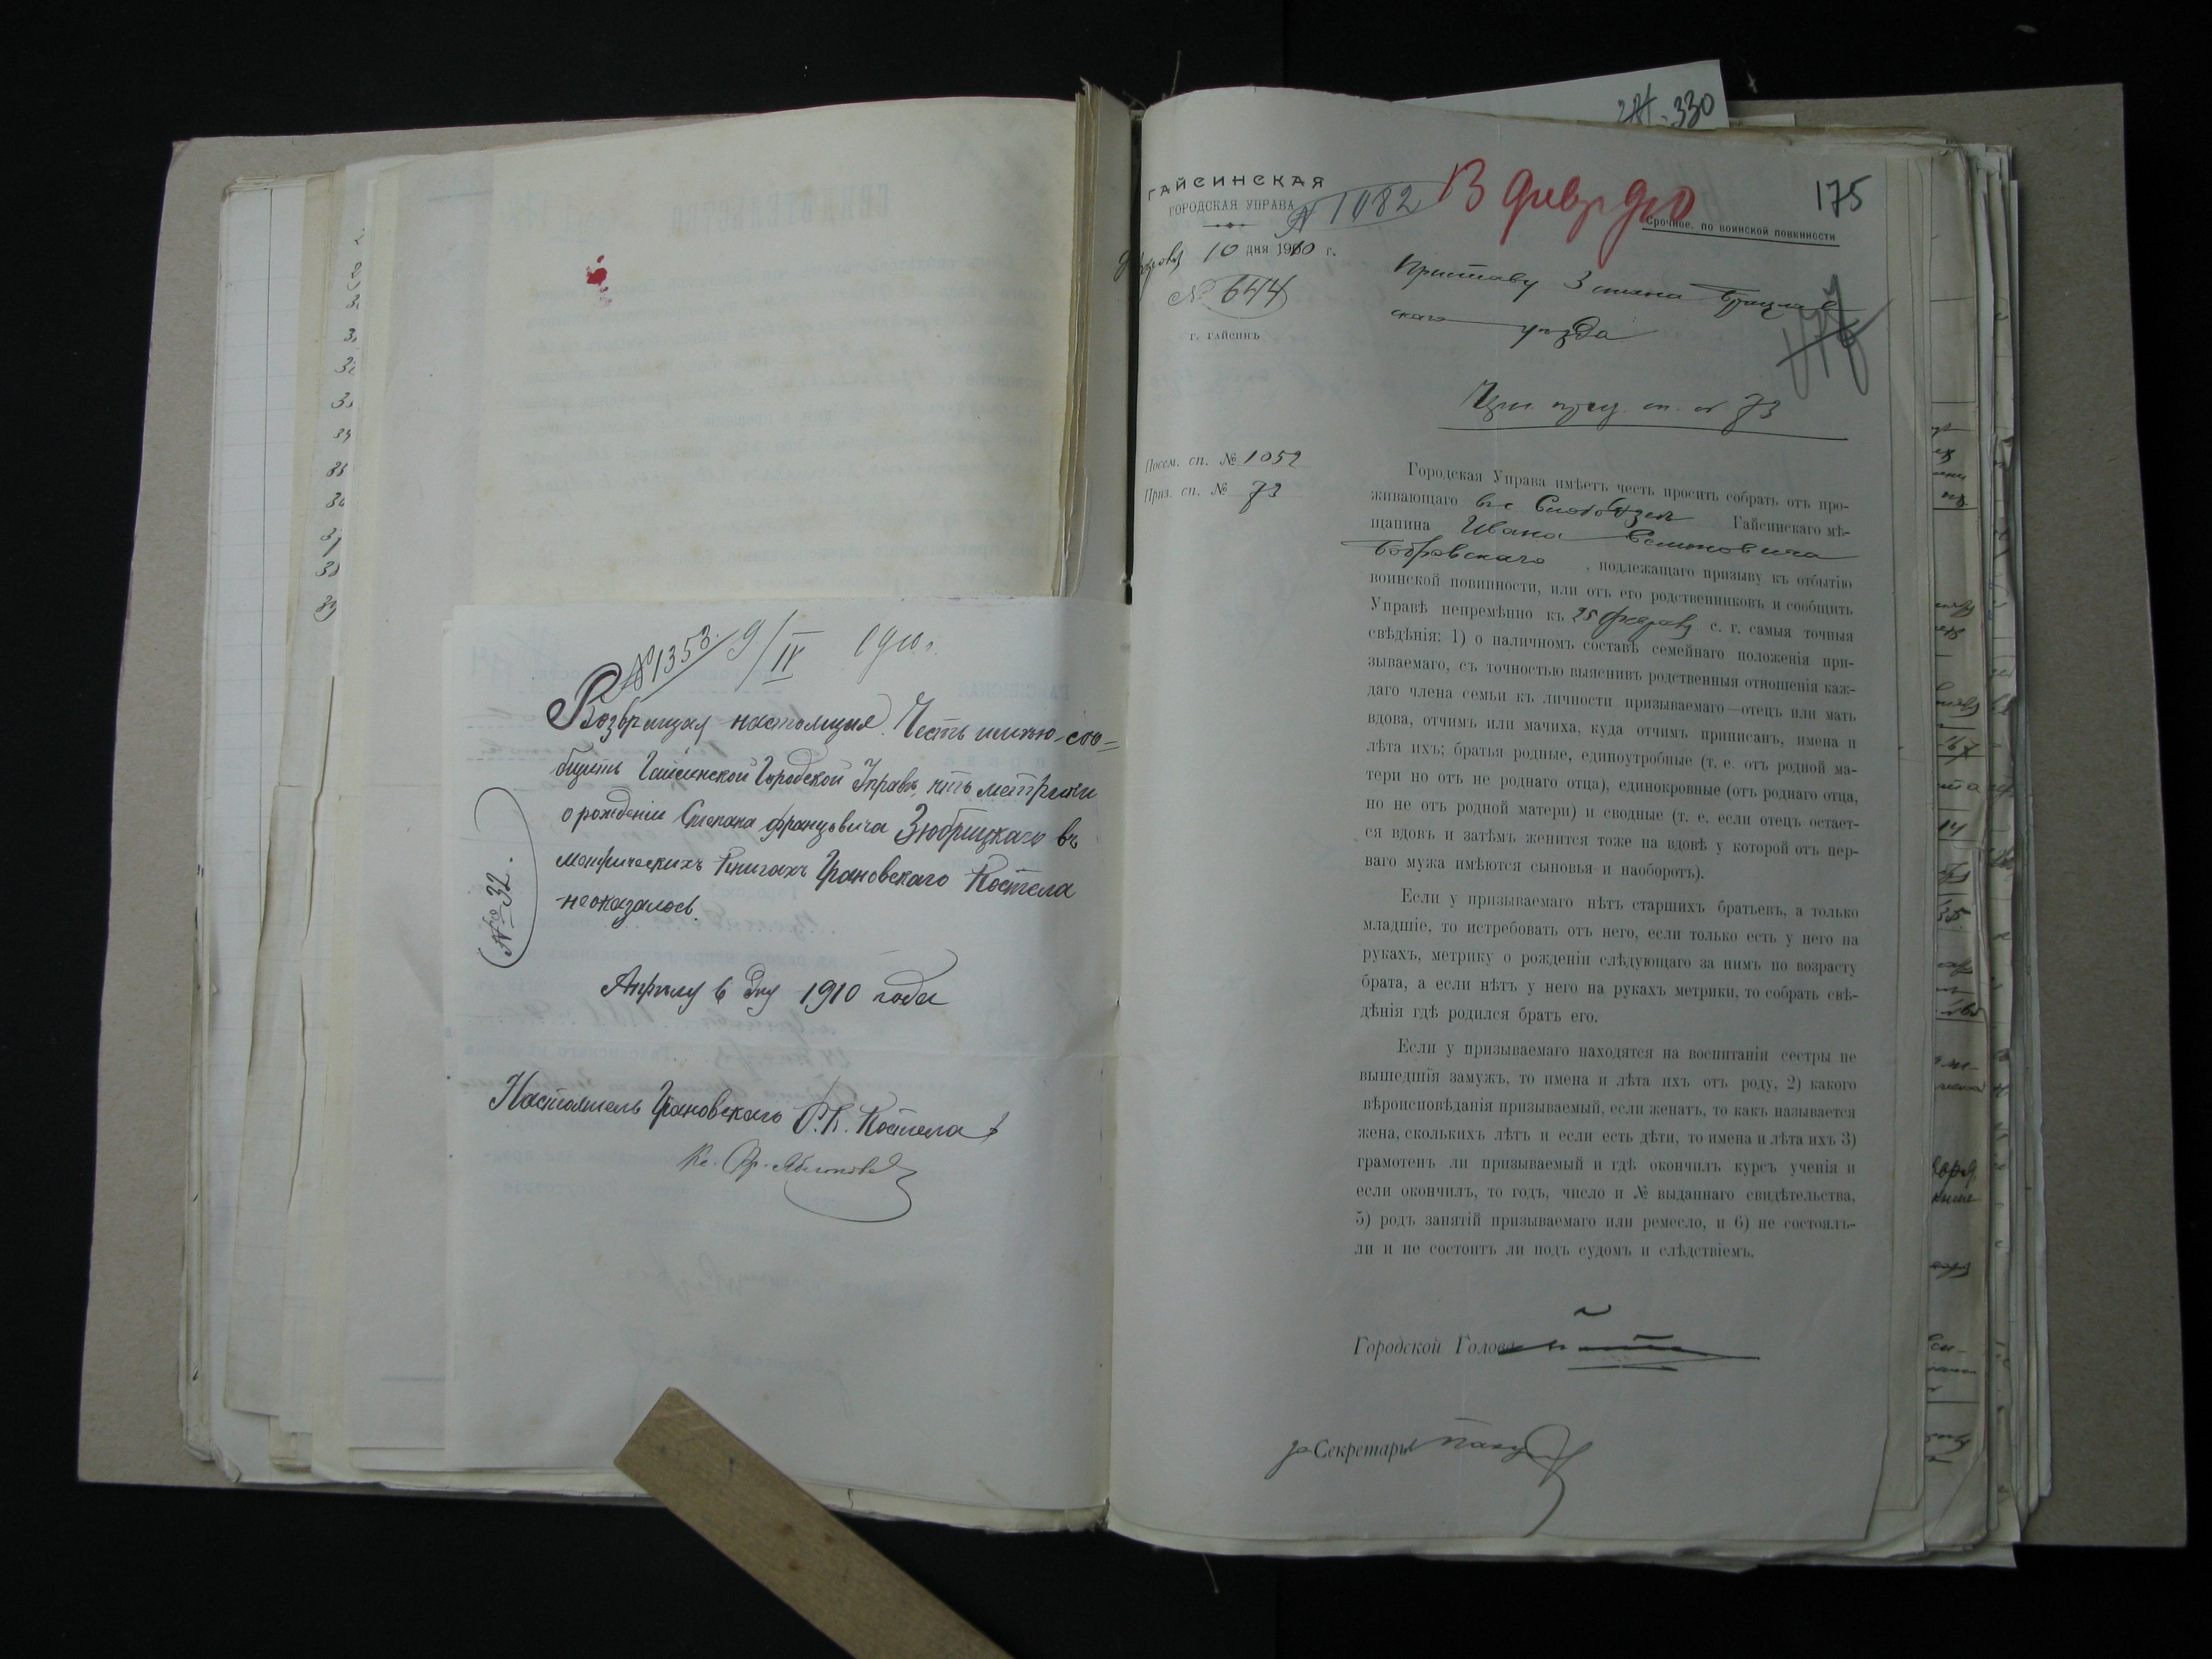 № 1353. 9/IV 1910 г.
Возвращая настоящее. Честь имѣю соо=
бщить Гайсинской Городской Управѣ, что метрики
о рожденіи Степана Францовича Зюбрицкаго въ
метрическихъ Книгахъ Грановскаго Костела
неоказалось.
№ 32.
Апрѣля 6 дня 1910 года
Настоятель Грановскаго Р. К. Костела
Кс. Фр.
30
31
34
37
38
39
274-330
175
ГАЙСИНСКАЯ
ГОРОДСКАЯ УПРАВА
№ 1082
13 февр 910
Срочное. по воинской повинности
10 дня 1910 г.
№ 644
г. ГАЙСИНЪ
Приставу 3 стана Брацлав
скаго уѣзда
Посем. сп. № 1052
Приз. сп. № 73
сп. № 73
Городская Управа имѣетъ честь просить собрать отъ про-
живающаго въ с Гайсинскаго мѣ-
щанина Ивана
Бобровскаго, подлежащаго призыву къ отбытію
воинской повинности, или отъ его родственниковъ и сообщить
Управѣ непремѣнно къ 25 февраля с. г. самыя точныя
свѣдѣнія: 1) о наличномъ составѣ семейнаго положенія при-
зываемаго, съ точностью выяснивъ родственныя отношенія каж-
даго члена семьи къ личности призываемаго—отецъ или мать
вдова, отчимъ или мачиха, куда отчимъ приписанъ, имена и
лѣта ихъ; братья родные, единоутробные (т. е. отъ родной ма-
тери но отъ не роднаго отца), единокровные (отъ роднаго отца,
но не отъ родной матери) и сводные (т. е. если отецъ остает-
ся вдовъ и затѣмъ женится тоже на вдовѣ у которой отъ пер-
ваго мужа имѣются сыновья и наоборотъ).
Если у призываемаго нѣтъ старшихъ братьевъ, а только
младшіе, то истребовать отъ него, если только есть у него на
рукахъ, метрику о рожденіи слѣдующаго за нимъ по возрасту
брата, а если нѣтъ у него на рукахъ метрики, то собрать свѣ-
дѣнія гдѣ родился братъ его.
Если у призываемаго находятся на воспитаніи сестры не
вышедшія замужъ, то имена и лѣта ихъ отъ роду, 2) какого
вѣроисповѣданія призываемый, если женатъ, то какъ называется
жена, сколькихъ лѣтъ и если есть дѣти, то имена и лѣта ихъ 3)
грамотенъ ли призываемый и гдѣ окончилъ курсъ ученія и
если окончилъ, то годъ, число и № выданнаго свидѣтельства,
5) родъ занятій призываемаго или ремесло, и 6) не состоялъ-
ли и не состоитъ ли подъ судомъ и слѣдствіемъ.
Городской Голова
за Секретаря